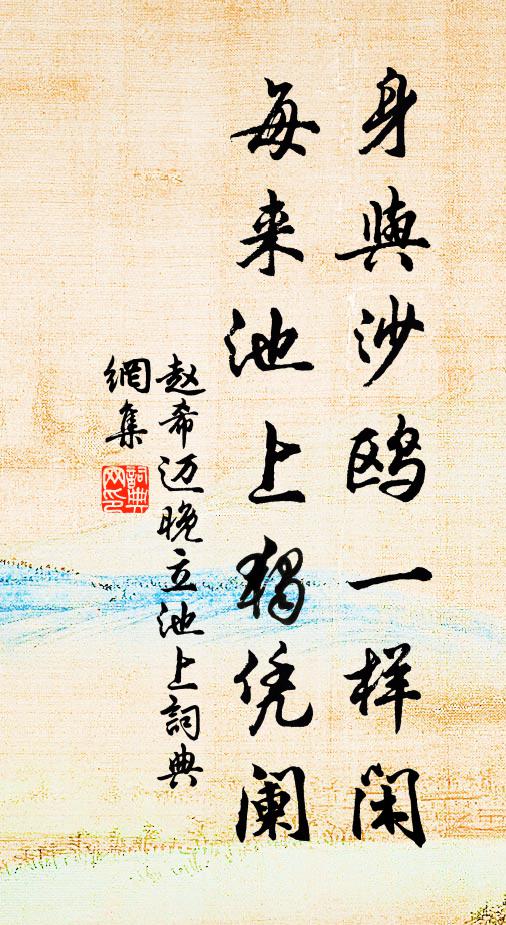 身與沙鸥一样闲
每来池上獨凭阑
赵希迈晚立池上詞典
網集
詞典网印